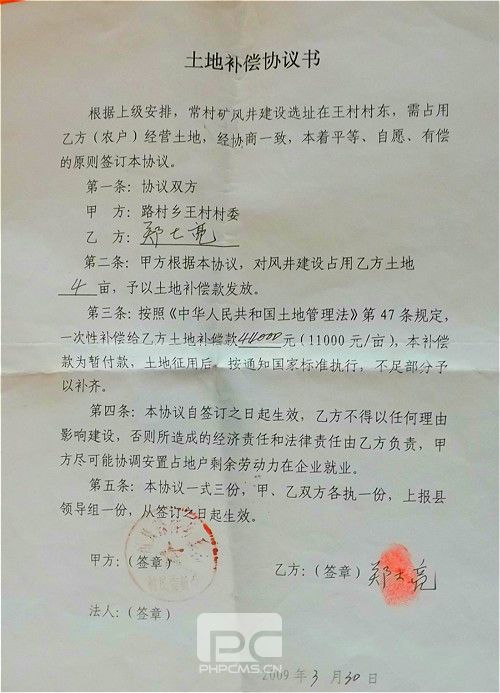 土地补偿协议书
根据上级安排，常村矿风井建设选址在王村村东，需占用
乙方（农户）经营土地，经协商一致，本着平等、自愿、有偿
的原则签订本协议。
第一条：协议双方
甲　方：路村乡王村村委
乙　方：郑大亮
第二条：甲方根据本协议，对风井建设占用乙方土地
4 亩，予以土地补偿款发放。
第三条：按照《中华人民共和国土地管理法》第 47 条规定，
一次性补偿给乙方土地补偿款44000元（11000 元/亩），本补偿
款为暂付款，土地征用后，按通知国家标准执行，不足部分予
以补齐。
第四条：本协议自签订之日起生效，乙方不得以任何理由
影响建设，否则所造成的经济责任和法律责任由乙方负责，甲
方尽可能协调安置占地户剩余劳动力在企业就业。
第五条：本协议一式三份，甲、乙双方各执一份，上报县
领导组一份，从签订之日起生效。
甲方：（签章）
乙方：（签章）郑大亮
法人：（签章）
PC
PHPCMS.CN
2009 年 3 月 30 日